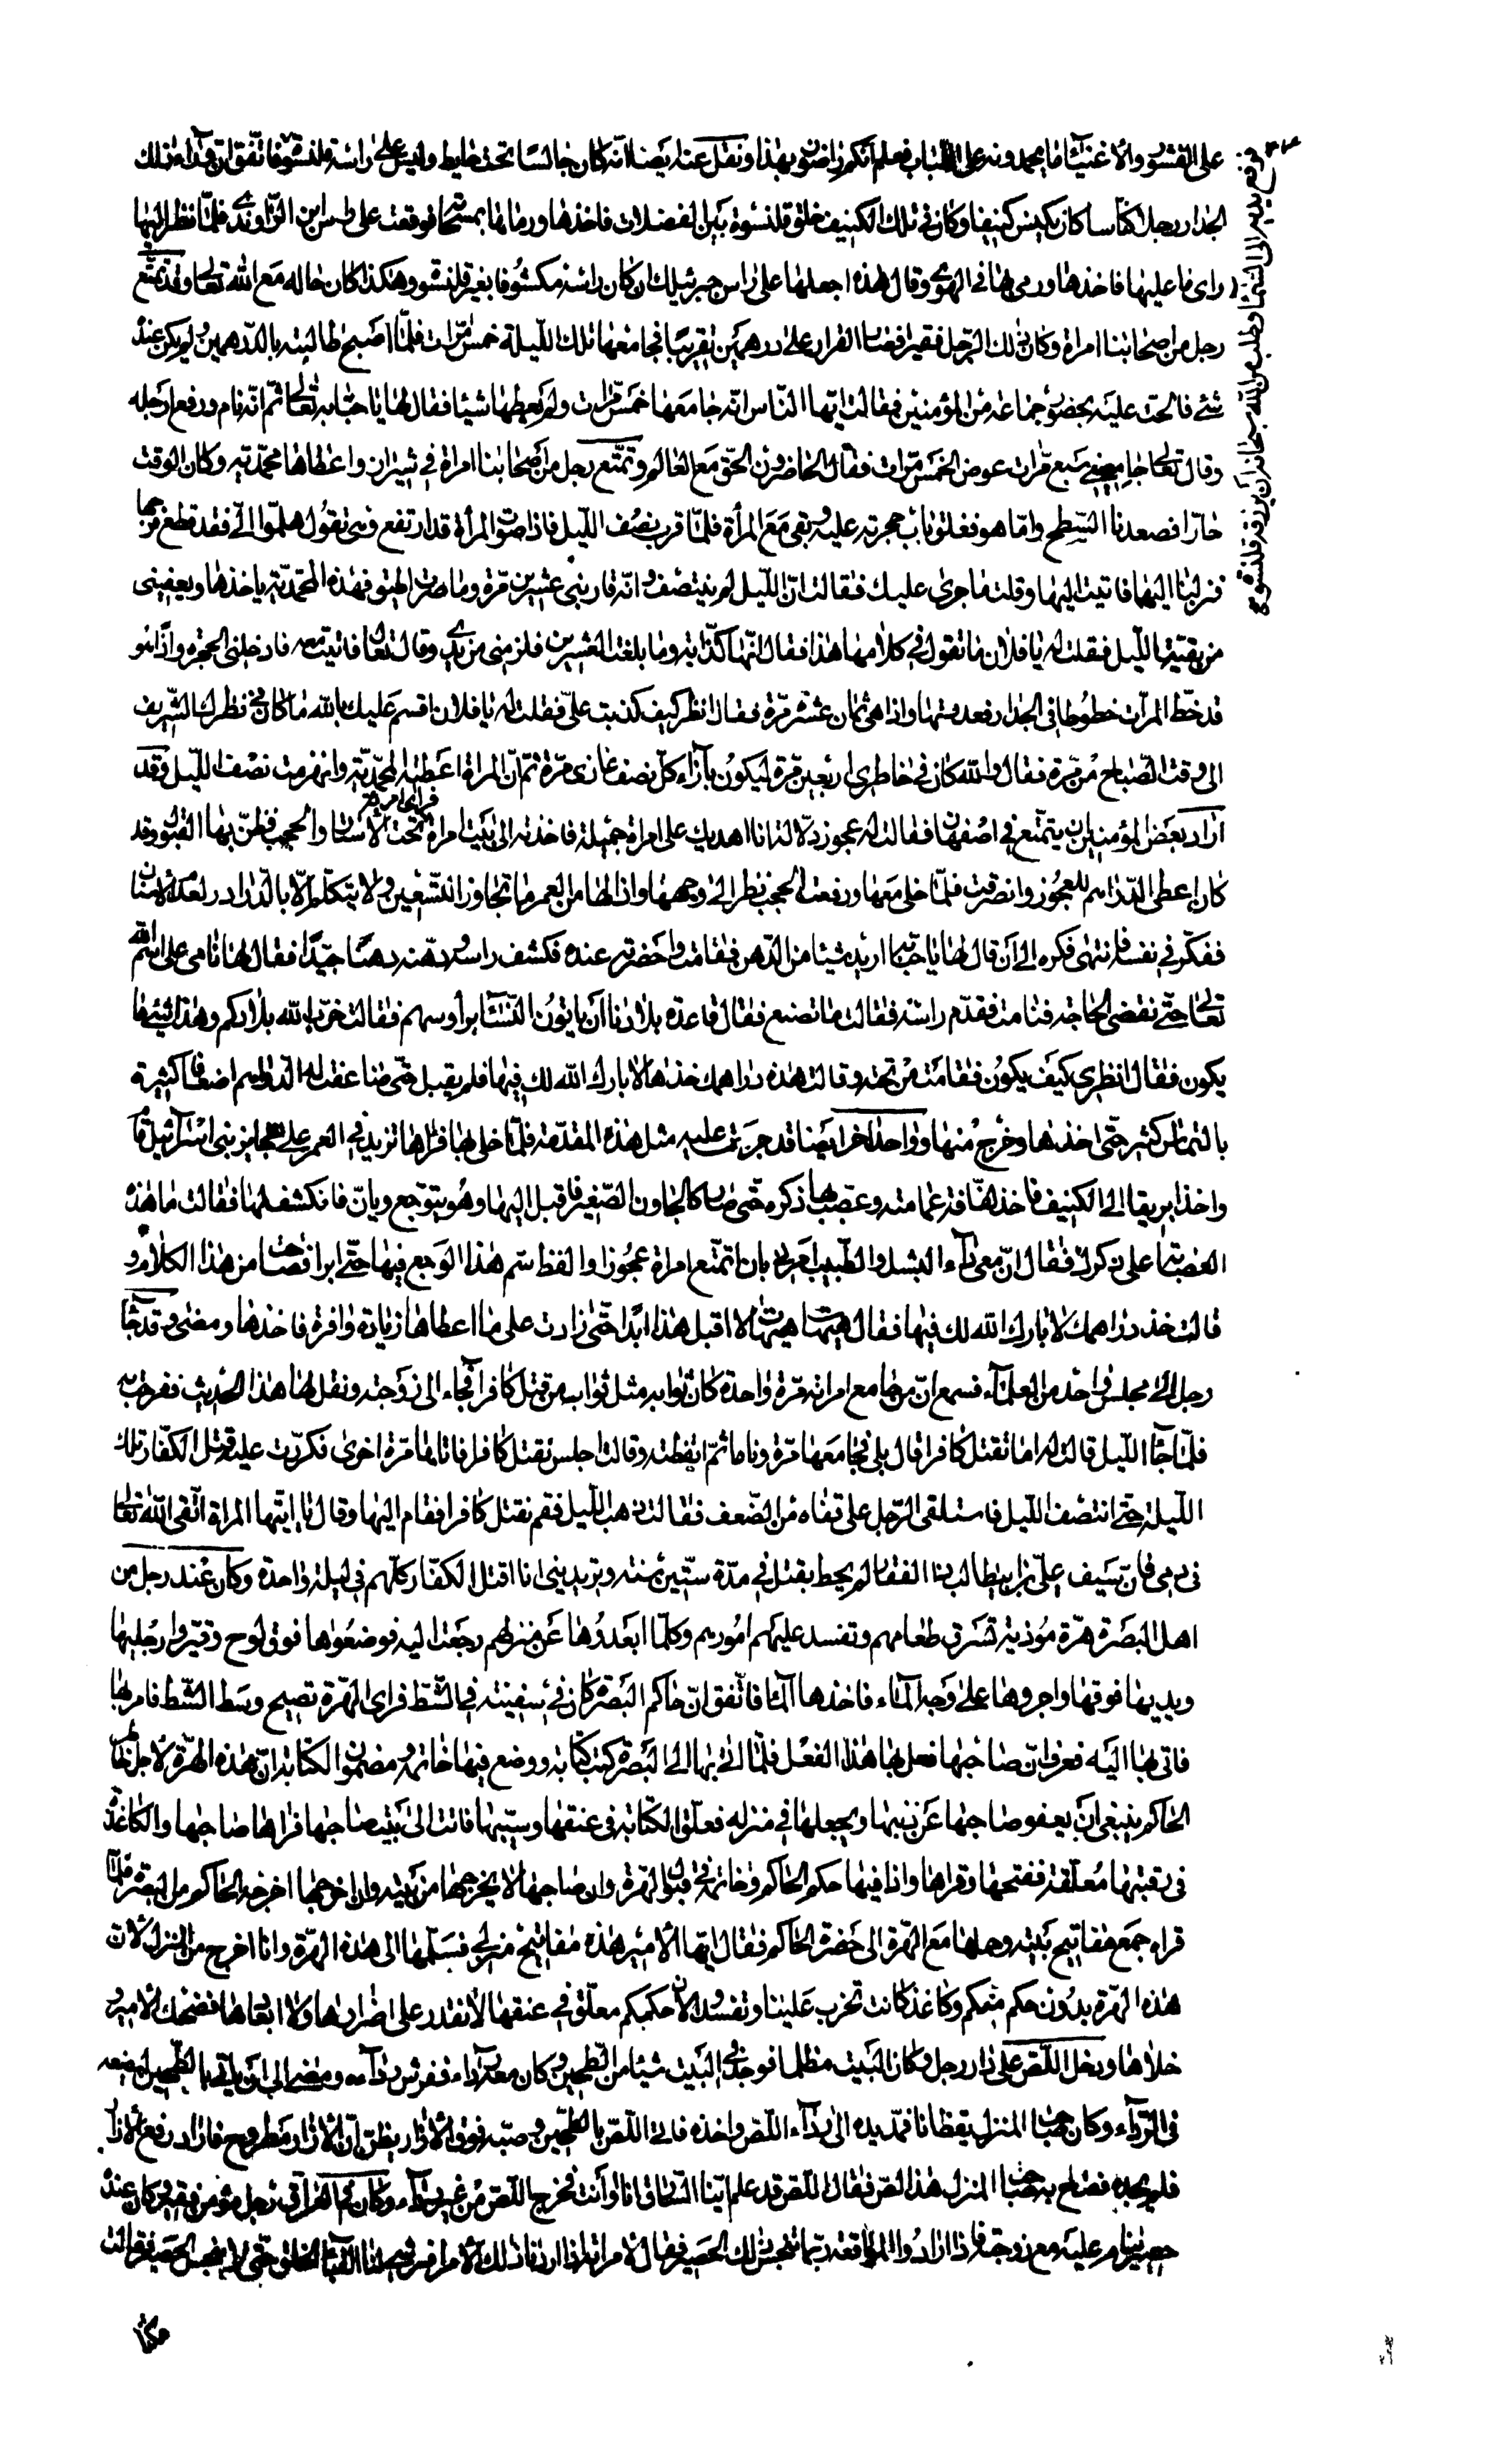 على القشور والاغنياء ما يحمدونه على اللباب فعلم انكم راضون بهذا ونقل عنه ايضا انه كان جالسا تحت حايط وليس على راسه قلنسوة فاتفق ان وراء ذلك
الجدار رجلا كناسا كان يكنس كنيفا وكان في تلك الكنيف خلق قلنسوة بين الفضلات فاخذها ورماها بمسحا فوقعت على راس ابن الراوندي فلما نظر اليها
راى ما عليها فاخذها ورمى بها في الهوى وقال هذه اجعلها على راس جبرئيلك ان كان راسه مكشوفا بغير قلنسوة وهكذا كان حاله مع الله تعالى وقد تمتع
رجل من اصحابنا امراة وكان ذلك الرجل فقيرا فصار القرار على درهمين تقريبا فجامعها تلك الليلة خمس مرات فلما اصبح طالبته بالدرهمين ولم يكن عنده
شئ فالحت عليه بحضور جماعة من المؤمنين فقالت ايها الناس انه جامعها خمس مرات ولم يعطها شيئا فقال لها يا حبابه تعالى ثم انه نام ورفع ارجله
وقال تعالى جامعيني سبع مرات عوض الخمس مرات فقال الحاضرون الحق مع العالم وتمتع رجل من اصحابنا امراة في شيراز واعطاها محمدية وكان الوقت
حارا فصعدنا السطح واما هو فغلق باب حجرته عليه وبقى مع المرأة فلما قرب نصف الليل فاذا صوت المرأة قد ارتفع وهي تقول هلموا الى فقد قطع فرجها
فنزلنا اليها فاتيت اليها وقلت ما جرى عليك فقالت ان الليل لم ينتصف وانه قاربني عشرين مرة وما صرت اطيق فهذه المحمدية ياخذها ويعفيني
من بقية الليل فقلت له يا فلان ما تقول في كلامها هذا فقال انها كذابة وما بلغت العشرين فلزمني من يدي وقال تعال فاتيت معه فادخلني الحجرة واذا هو
قد خط المرات خطوطا في الجدار فعددتها واذا هي ثمان عشرة مرة فقال انظر كيف كذبت علي فقلت له يا فلان اقسم عليك بالله ما كان في نظرك الشريف
الى وقت الصباح من مرة فقال والله كان في خاطري اربعين مرة ليكون بازاء كل نصف غازى مرة ثم ان المراة اعطته المحمدية وانهزمت نصف الليل وقد
اراد بعض المؤمنين ان يتمتع في اصفهان فقالت له عجوز دلالة انا اهديك على امراة جميلة فاخذته الى بيت امراة تحت الاستار والحجب فظن بها القبول وقد
كان اعطى الدراهم للعجوز وانصرفت فلما خلى معها ورفعت الحجب نظر الى وجهها واذا لها من العمر ما تجاوز التسعين ولا يتكلم الا بالدردر لعدم الاسنان
ففكر في نفسه فانتهى فكره الى ان قال لها يا حبابه اريد شيئا من الدهن فقامت واحضرته عنده فكشف راسه ودهنه دهنا جيدا فقال لها نامى على اسم الله
تعالى حتى نقضى الحاجة فنامت فقدم راسه فقالت ما تصنع فقال قاعدة بلادنا ان ياتون النساء برأوسهم فقالت خرب الله بلادكم وهذا شئ ما
يكون فقال انظري كيف يكون فقامت من تحته وقالت هذه دراهمك خذها لا بارك الله لك فيها فلم يقبل حتى ضاعفت له الدراهم اضعافا كثيرة
بالتماس كثير حتى اخذها وخرج منها وواحد اخر ايضا قد جرت عليه مثل هذه المقدمة فلما خلى بها فراها تزيد في العمر على عجايز بني اسرائيل قام
واخذ ابريقا الى الكنيف فاخذ لفافة عمامته وعصب بها ذكره حتى صار كالهاون الصغير فاقبل اليها وهو يتوجع ويان فانكشف لها فقالت ما هذه
العصبة على ذكرك فقال ان معي داء البشل والطبيب امرني بان اتمتع امراة عجوزا والفظ سم هذا الوجع فيها حتى ابرا فصاحت من هذا الكلام و
قالت خذ دراهمك لا بارك الله لك فيها فقال هيهات هيهات لا اقبل هذا ابدا حتى زادت على ما اعطاها زيادة وافرة فاخذها ومضى وقد جاء
رجل الى مجلس واحد من العلماء فسمع ان من جامع امراته مرة واحدة كان ثوابه مثل ثواب من قتل كافرا فجاء الى زوجته ونقل لها هذا الحديث ففرحت به
فلما جاء الليل قالت له اما تقتل كافرا قال بلى فجامعها مرة وناما ثم ايقظته وقالت اجلس نقتل كافرا فاتاها مرة اخرى فكررت عليه قتل الكفار تلك
الليلة حتى انتصف الليل فاستلقى الرجل على قفاه من الضعف فقالت ذهب الليل فقم نقتل كافرا فقام اليها وقال لها ايتها المراة اتقى الله تعالى
في دمي فان سيف علي بن ابيطالب ذا الفقار لم يحط بقتل في مدة ستين سنة وتريديني انا اقتل الكفار كلهم في ليلة واحدة وكان عند رجل من
اهل البصرة هرة موذية تسرق طعامهم وتفسد عليهم امورهم وكلما ابعدوها عن منزلهم رجعت اليه فوضعوها فوق لوح وقيروا رجليها
ويديها فوقها واجروها على وجه الماء فاخذها الماء فاتفق ان حاكم البصرة كان في سفينته في الشط فراى الهرة تصيح وسط الشط فامر بها
فاتى بها اليه فعرف ان صاحبها فعل بها هذا الفعل فلما اتى بها الى البصرة كتب كتابة ووضع فيها خاتمه ومضمون الكتابة ان هذه الهرة لاجل خاطر
الحاكم ينبغى ان يعفو صاحبها عن ذنبها ويجعلها في منزله فعلق الكتابة في عنقها وسيبها فاتت الى بيت صاحبها فراها صاحبها والكاغذ
في رقبتها معلقة ففتحها وقراها واذا فيها حكم الحاكم وخاتمه في قبول الهرة وان صاحبها لا يخرجها من بيته وان اخرجها اخرجه الحاكم من البصرة فلما
قراه جمع مفاتيح بيته وحملها مع الهرة الى حضرة الحاكم فقال ايها الامير هذه مفاتيح منزلى فسلمها الى هذه الهرة وانا اخرج من المنزل لان
هذه الهرة بدون حكم منكم وكاغذ كانت تخرب علينا وتفسد والان حكمكم معلق في عنقها لا نقدر على اضرارها ولا ابعادها فضحك الامير و
خلاها ودخل اللص على دار رجل وكان البيت مظلما فوجد في البيت شيئا من الطحين وكان معه رداء ففرش رداءه ومضى الى ان ياتي بالطحين ليضعه
في الرداء وكان صاحب المنزل يقظانا فمد يده الى رداء اللص واخذه فاتى اللص بالطحين وصبه فوق الازار بظن ان الازار مطروح فاراد رفع الازار
فلم يجده فصاح به صاحب المنزل هذا لص فقال اللص قد علم اينا السارق انا او انت فخرج اللص من غير رداء وكان في العراق رجل مؤمن فقير وكان عنده
حصير ينام عليه مع زوجته فاذا ارادوا المواقعة ربما تنجس ذلك الحصير فقال لامراته اذا اردنا ذلك الامر افرشي لنا العباء الخلق حتى لا ينجس الحصير فقالت
في رفع يديه الى السماء وطلب من الله سبحانه ان يرزقه قلنسوة